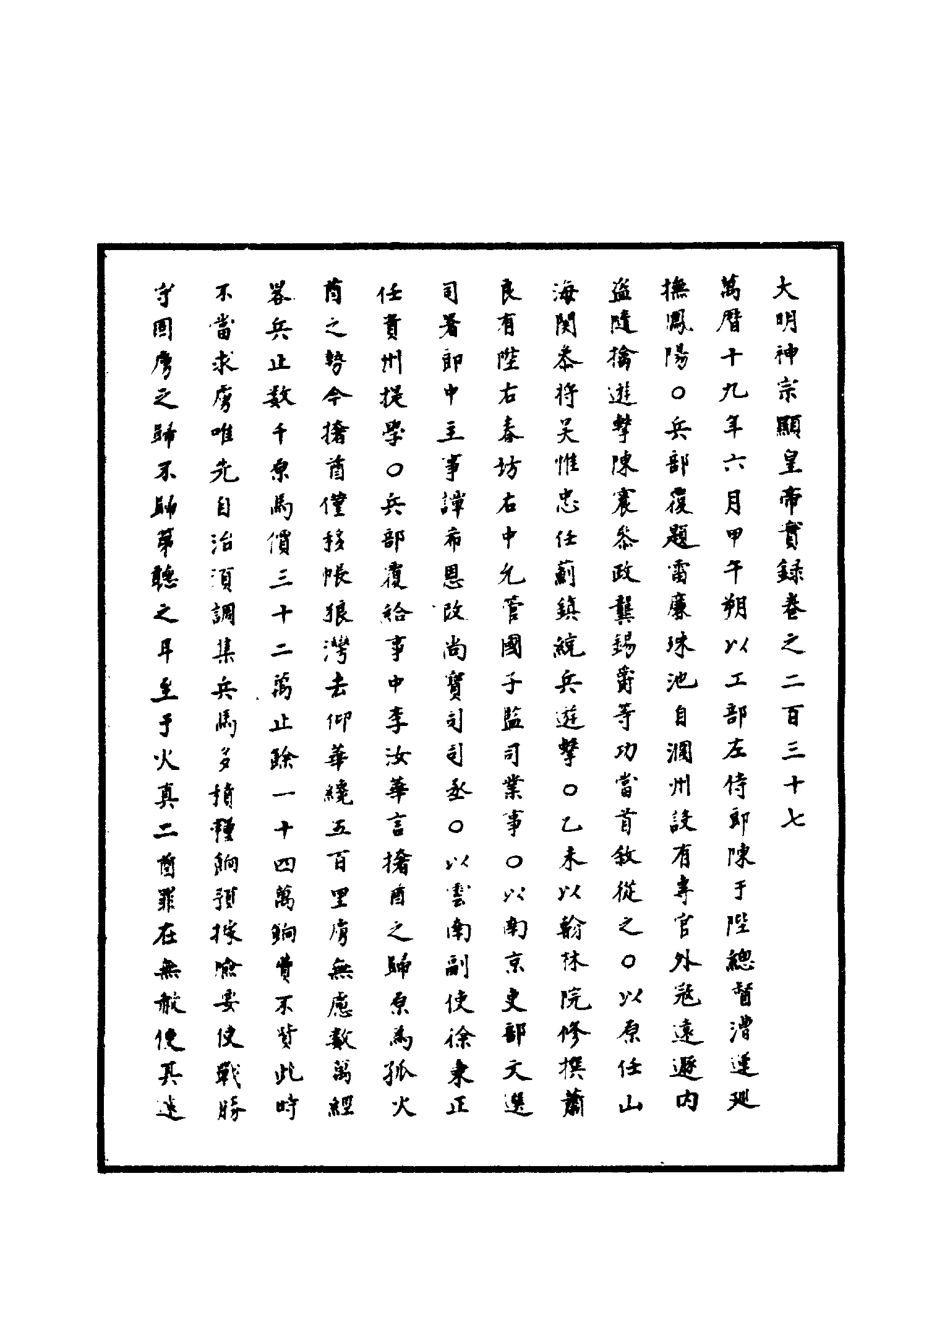 大明神宗顯皇帝實録卷之二百三十七
萬曆十九年六月甲午朔以工部左侍郎陳于陛總督漕運廵
撫鳳陽〇兵部覆題雷廉珠池自潿州設有專官外冦遠遯内
盗隨擒遊擊陳震叅政龔錫爵等功當首敘從之〇以原任山
海関叅将吴惟忠任薊鎮統兵遊擊〇乙未以翰林院修撰蕭
良有陞右春坊右中允管國子監司業事〇以南京吏部文選
司署郎中主事譚希恩改尚寶司司丞〇以雲南副使徐秉正
任貴州提學〇兵部覆給事中李汝華言撦酋之歸原為孤火
酋之勢今撦酋僅移帳狼灣去仰華纔五百里虜無慮數萬經
畧兵止数千原馬價三十二萬止餘一十四萬餉費不貲此時
不當求虜唯先自治湏調集兵馬多積糧餉預據險要使戰勝
守固虜之歸不歸第聽之耳至于火真二酋罪在無赦使其遠